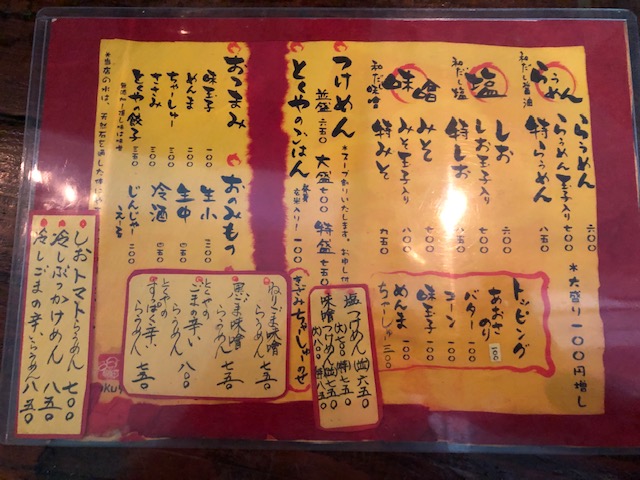 らぅめん
和だし醤油
らぅめん 六〇〇
らぅめん玉子入り 七〇〇
特らぅめん 八五〇
塩
和だし塩
しお 六〇〇
しお玉子入り 七〇〇
特しお 八五〇
味噌
和だし味噌
みそ 七〇〇
みそ玉子入り 八〇〇
特みそ 九五〇
*大盛り一〇〇円増し
トッピング
あおさのり 100
バター 一〇〇
コーン 一〇〇
味玉子 一〇〇
めんま 一〇〇
ちゃーしゅー 三〇〇
つけめん
*スープ割りいたします。お申し付
並盛 六五〇 大盛 七〇〇 特盛 七五〇
とくやのごはん
玄米入り! 一〇〇
きざみちゃーしゅーのせ
塩つけめん(並)六五〇
(大)七〇〇(特)七五〇
味噌つけめん(並)七五〇
(大)八〇〇(特)八五〇
おつまみ
味玉子 一〇〇
めんま 二〇〇
ちゃーしゅー 三〇〇
とくや餃子 三五〇
おのみもの
生小 三〇〇
生中 四五〇
冷酒 四五〇
じんじゃーえーる 二〇〇
*当店の水は、天然石を通した
ねりごま味噌らぅめん 七五〇
黒ごま味噌らぅめん 七五〇
とくやのごまの辛いらぅめん 八〇〇
とくやのすっぱく辛いらぅめん 七五〇
しおトマトらぅめん 七〇〇
冷しぶっかけめん 八五〇
冷しごまの辛いらぅめん 八五〇